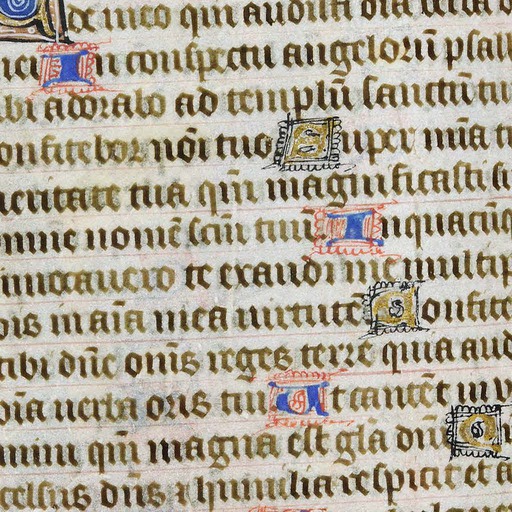 de meo qm audisti oia verba o
mei In conspectu angelorū psall
ibi adorabo ad templū sanctū tu
onfitebor nōi tuo Super mīa t
veritate tua qm̄ magnificasti su
omne nomē scm̄ tuū In quacūq
invocavero te exaudi me multip
bis in aīa mea virtutē Confite
tibi dn̄e om̄s reges terre quia aud
oīa verba oris tui Et cantēt in v
mini qm̄ magna est glā dn̄i
celsus dn̄s ⁊ humilia respicit et a